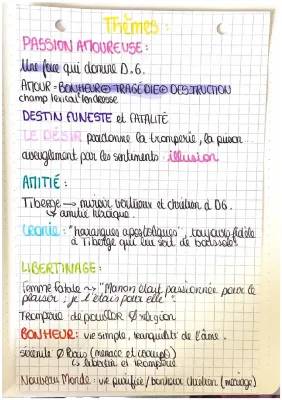 Thèmes :
PASSION AMOUREUSE :
Une force qui domine D.G.
AMOUR = BONHEUR ⊕ TRAGÉDIE ⊕ DESTRUCTION
champ lexical tendresse
DESTIN FUNESTE et FATALITÉ
LE DÉSIR pardonne la tromperie, la prison
aveuglement par les sentiments : illusion
AMITIÉ :
Tiberge → miroir vertueux et chrétien à DG.
↳ amitié héroïque.
ironie : "harangues apostoliques", toujours fidèle
à Tiberge qui lui sert de
LIBERTINAGE :
Femme fatale ~> "Manon était passionnée pour le
plaisir ; je l'étais pour elle".
Tromperie de Ø religion
BONHEUR : vie simple, tranquillité de l'âme.
sérénité Ø Paris (menace et
↳ libertin et tromperie
Nouveau Monde : vie purifiée / bonheur chrétien (mariage)